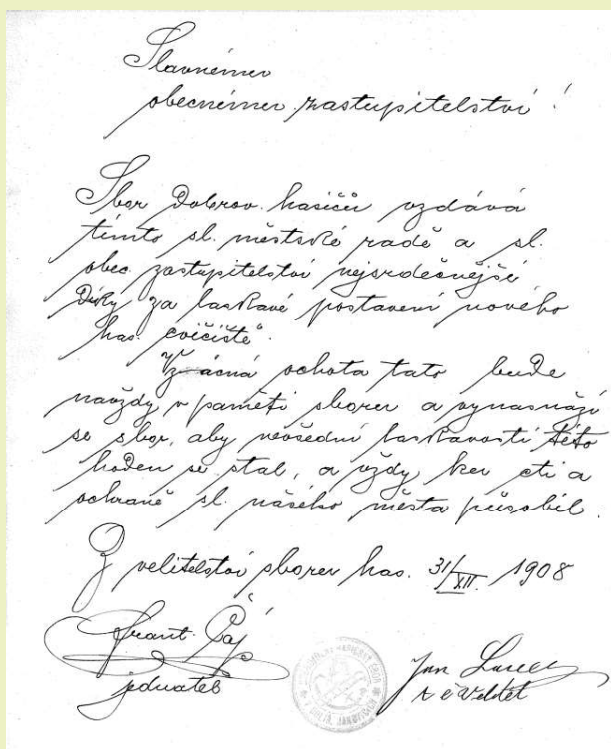 Slavnému
obecnému zastupitelství!
Sbor Dobrov. hasičů vzdává
tímto sl. městské radě a sl.
obec. zastupitelství nejsrdečnější
Díky za laskavé postavení nového
has. cvičiště.
Vzácná ochota tato bude
navždy v paměti sboru a vynasnaží
se sbor, aby nevšední laskavosti této
hoden se stal, a vždy ku cti a
ochraně sl. našeho města působil.
Z velitelství sboru has. 31/XII. 1908
Frant. Páj
jednatel
Jan